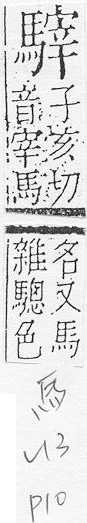 騂
子亥切
音宰馬
名又馬
雜驄色
馬
U13
P10